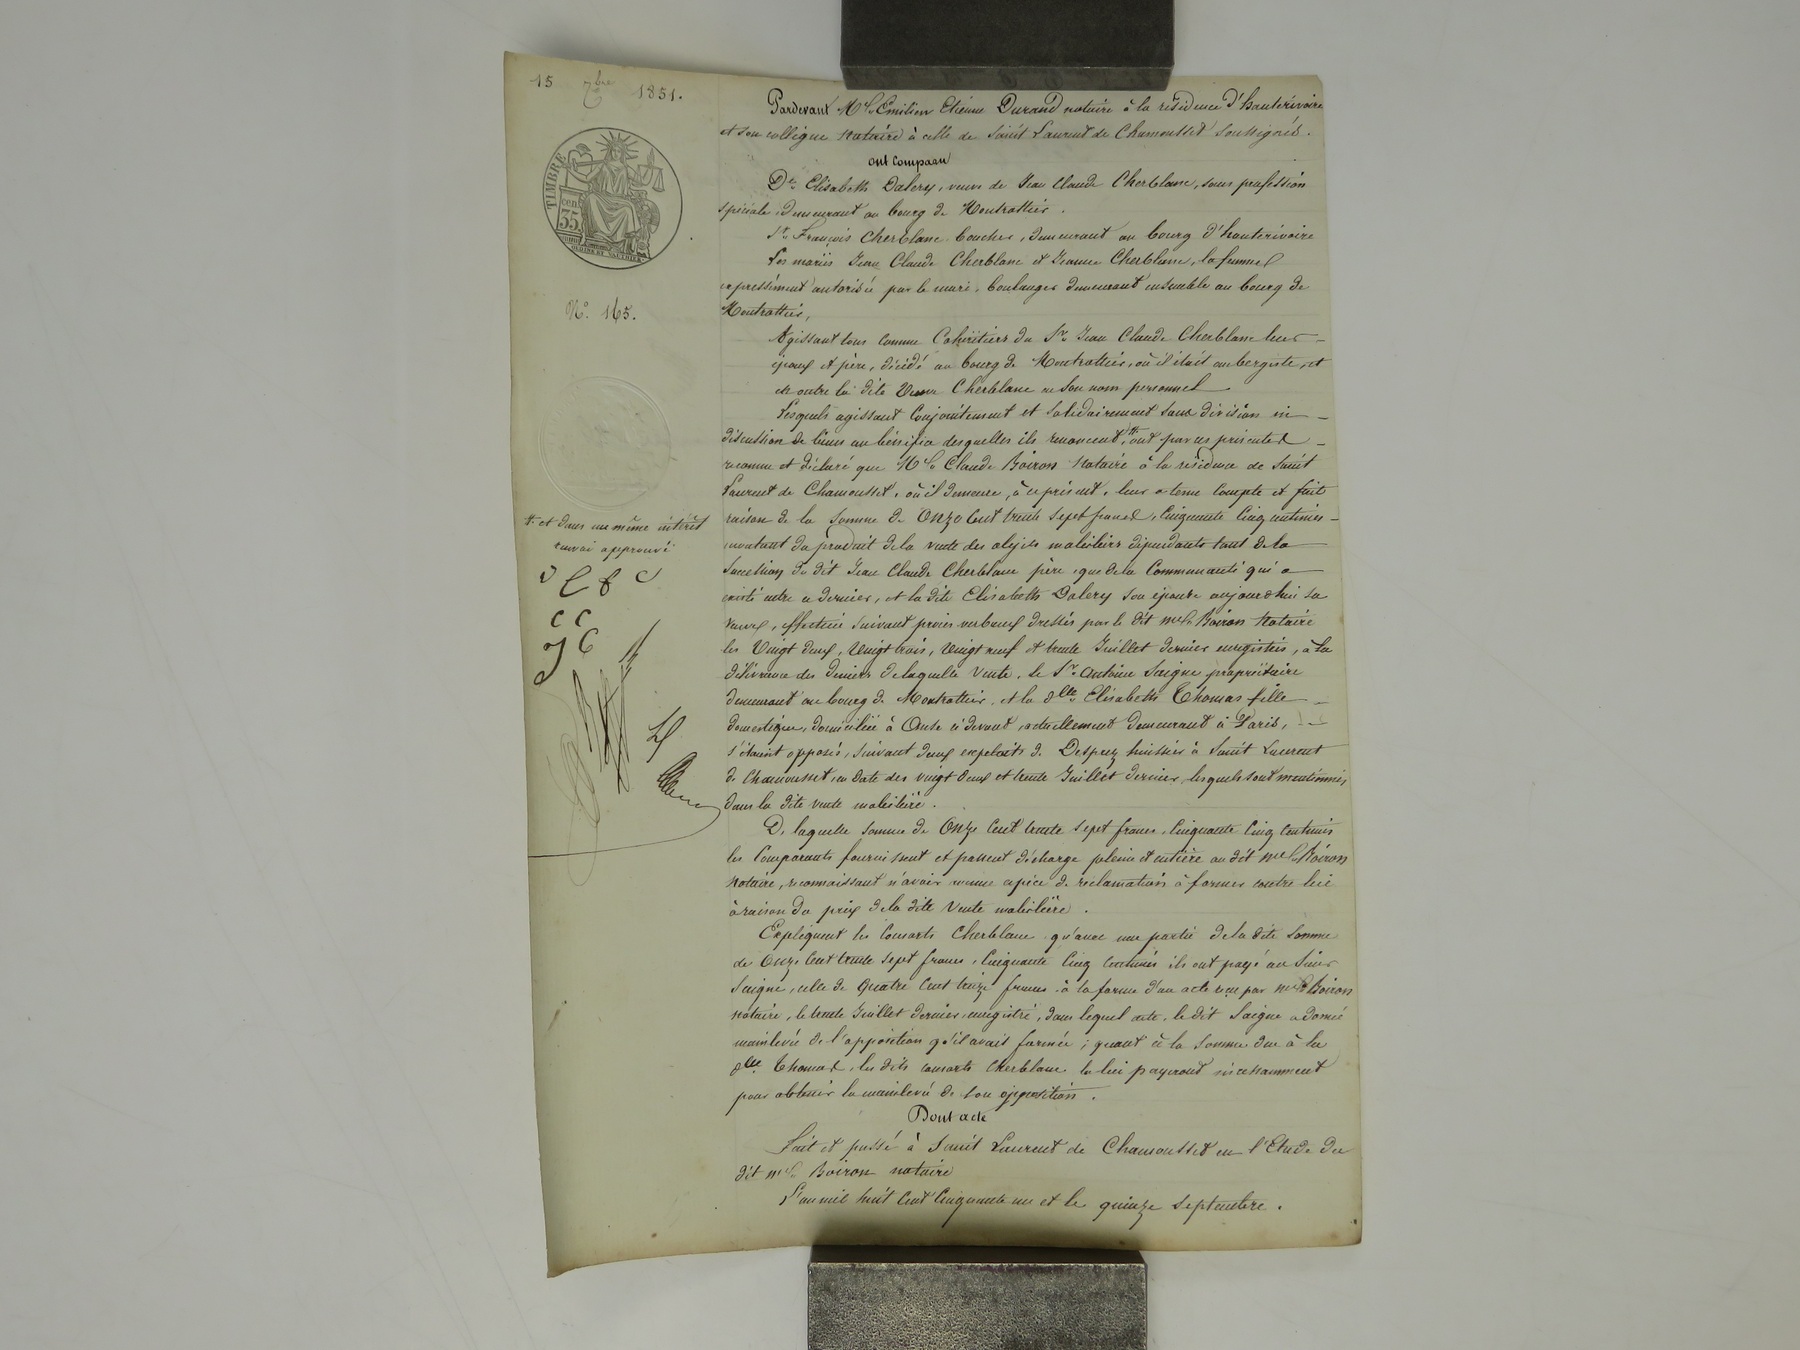 15 7bre 1851.
TIMBRE
35
cen
OUDINE ET GAUTHIER
No. 165.
# et dans un même intérêt
renvoi approuvé
Pardevant Me Emilien Etienne Durand notaire à la résidence d'hauterivoire
et son collègue notaire à celle de Saint Laurent de Chamousset soussignés.
ont comparu
De Elisabeth Dalery, veuve de Jean Claude Cherblanc, sans profession
spéciale, demeurant au bourg de Montrottier.
Sr. François Cherblanc, boucher, demeurant au bourg d'hauterivoire
Les mariés Jean Claude Cherblanc et Jeanne Cherblanc, la femme
expressément autorisée par le mari, boulanger demeurant ensemble au bourg de
Montrottier,
Agissant tous comme Cohéritiers du Sr. Jean Claude Cherblanc leur
époux et père, décédé au bourg de Montrottier, où il était aubergiste, et
en outre la dite Veuve Cherblanc en son nom personnel
Lesquels agissant Conjointement et Solidairement sans division ni
discussion de biens au bénéfice desquelles ils renoncent, # ont par ces présentes
reconnu et déclaré que Me Claude Boiron Notaire à la résidence de Saint
Laurent de Chamousset, où il demeure, à ce présent, leur a tenu Compte et fait
raison de la somme de Onze Cent trente sept francs, Cinquante Cinq centimes
montant du produit de la vente des objets mobiliers dépendants tant de la
Succession du dit Jean Claude Cherblanc père que de la Communauté qui a
existé entre ce dernier, et la dite Elisabeth Dalery son épouse aujourd'hui sa
veuve, effectuée suivant procès verbaux dressés par le dit Me Boiron Notaire
les Vingt deux, Vingt trois, Vingt neuf et trente Juillet dernier enregistrés, à la
délivrance des deniers de laquelle vente, le Sr. Antoine Saigne propriétaire
demeurant au bourg de Montrottier, et la dlle. Elisabeth Thomas fille
domestique, domiciliée à Anse ci devant, actuellement demeurant à Paris,
s'étaient opposés, suivant deux exploits de Despeez huissier à Saint Laurent
de Chamousset, en date des vingt deux et trente Juillet dernier, lesquels sont mentionnés
dans la dite vente mobilière.
De laquelle somme de Onze Cent trente sept francs, Cinquante Cinq Centimes
les Comparants fournissent et passent décharge pleine et entière au dit Me Boiron
Notaire, reconnaissant n'avoir aucune espèce de réclamation à former contre lui
à raison du prix de la dite Vente mobilière.
Expliquent les Consorts Cherblanc qu'avec une partie de la dite Somme
de Onze Cent trente sept francs, Cinquante Cinq Centimes ils ont payé au Sieur
Saigne, celle de quatre Cent treize francs à la forme d'un acte reçu par Me Boiron
notaire, le trente Juillet dernier, enregistré, dans lequel acte, le dit Saigne a donné
mainlevée de l'opposition qu'il avait formée; quant à la somme due à la
dlle. Thomas, les dits consorts Cherblanc la lui payeront incessamment
pour obtenir la mainlevée de son opposition.
Dont acte
Fait et passé à Saint Laurent de Chamousset en l'Etude du
dit Me Boiron notaire
L'an mil huit Cent Cinquante un et le quinze septembre.